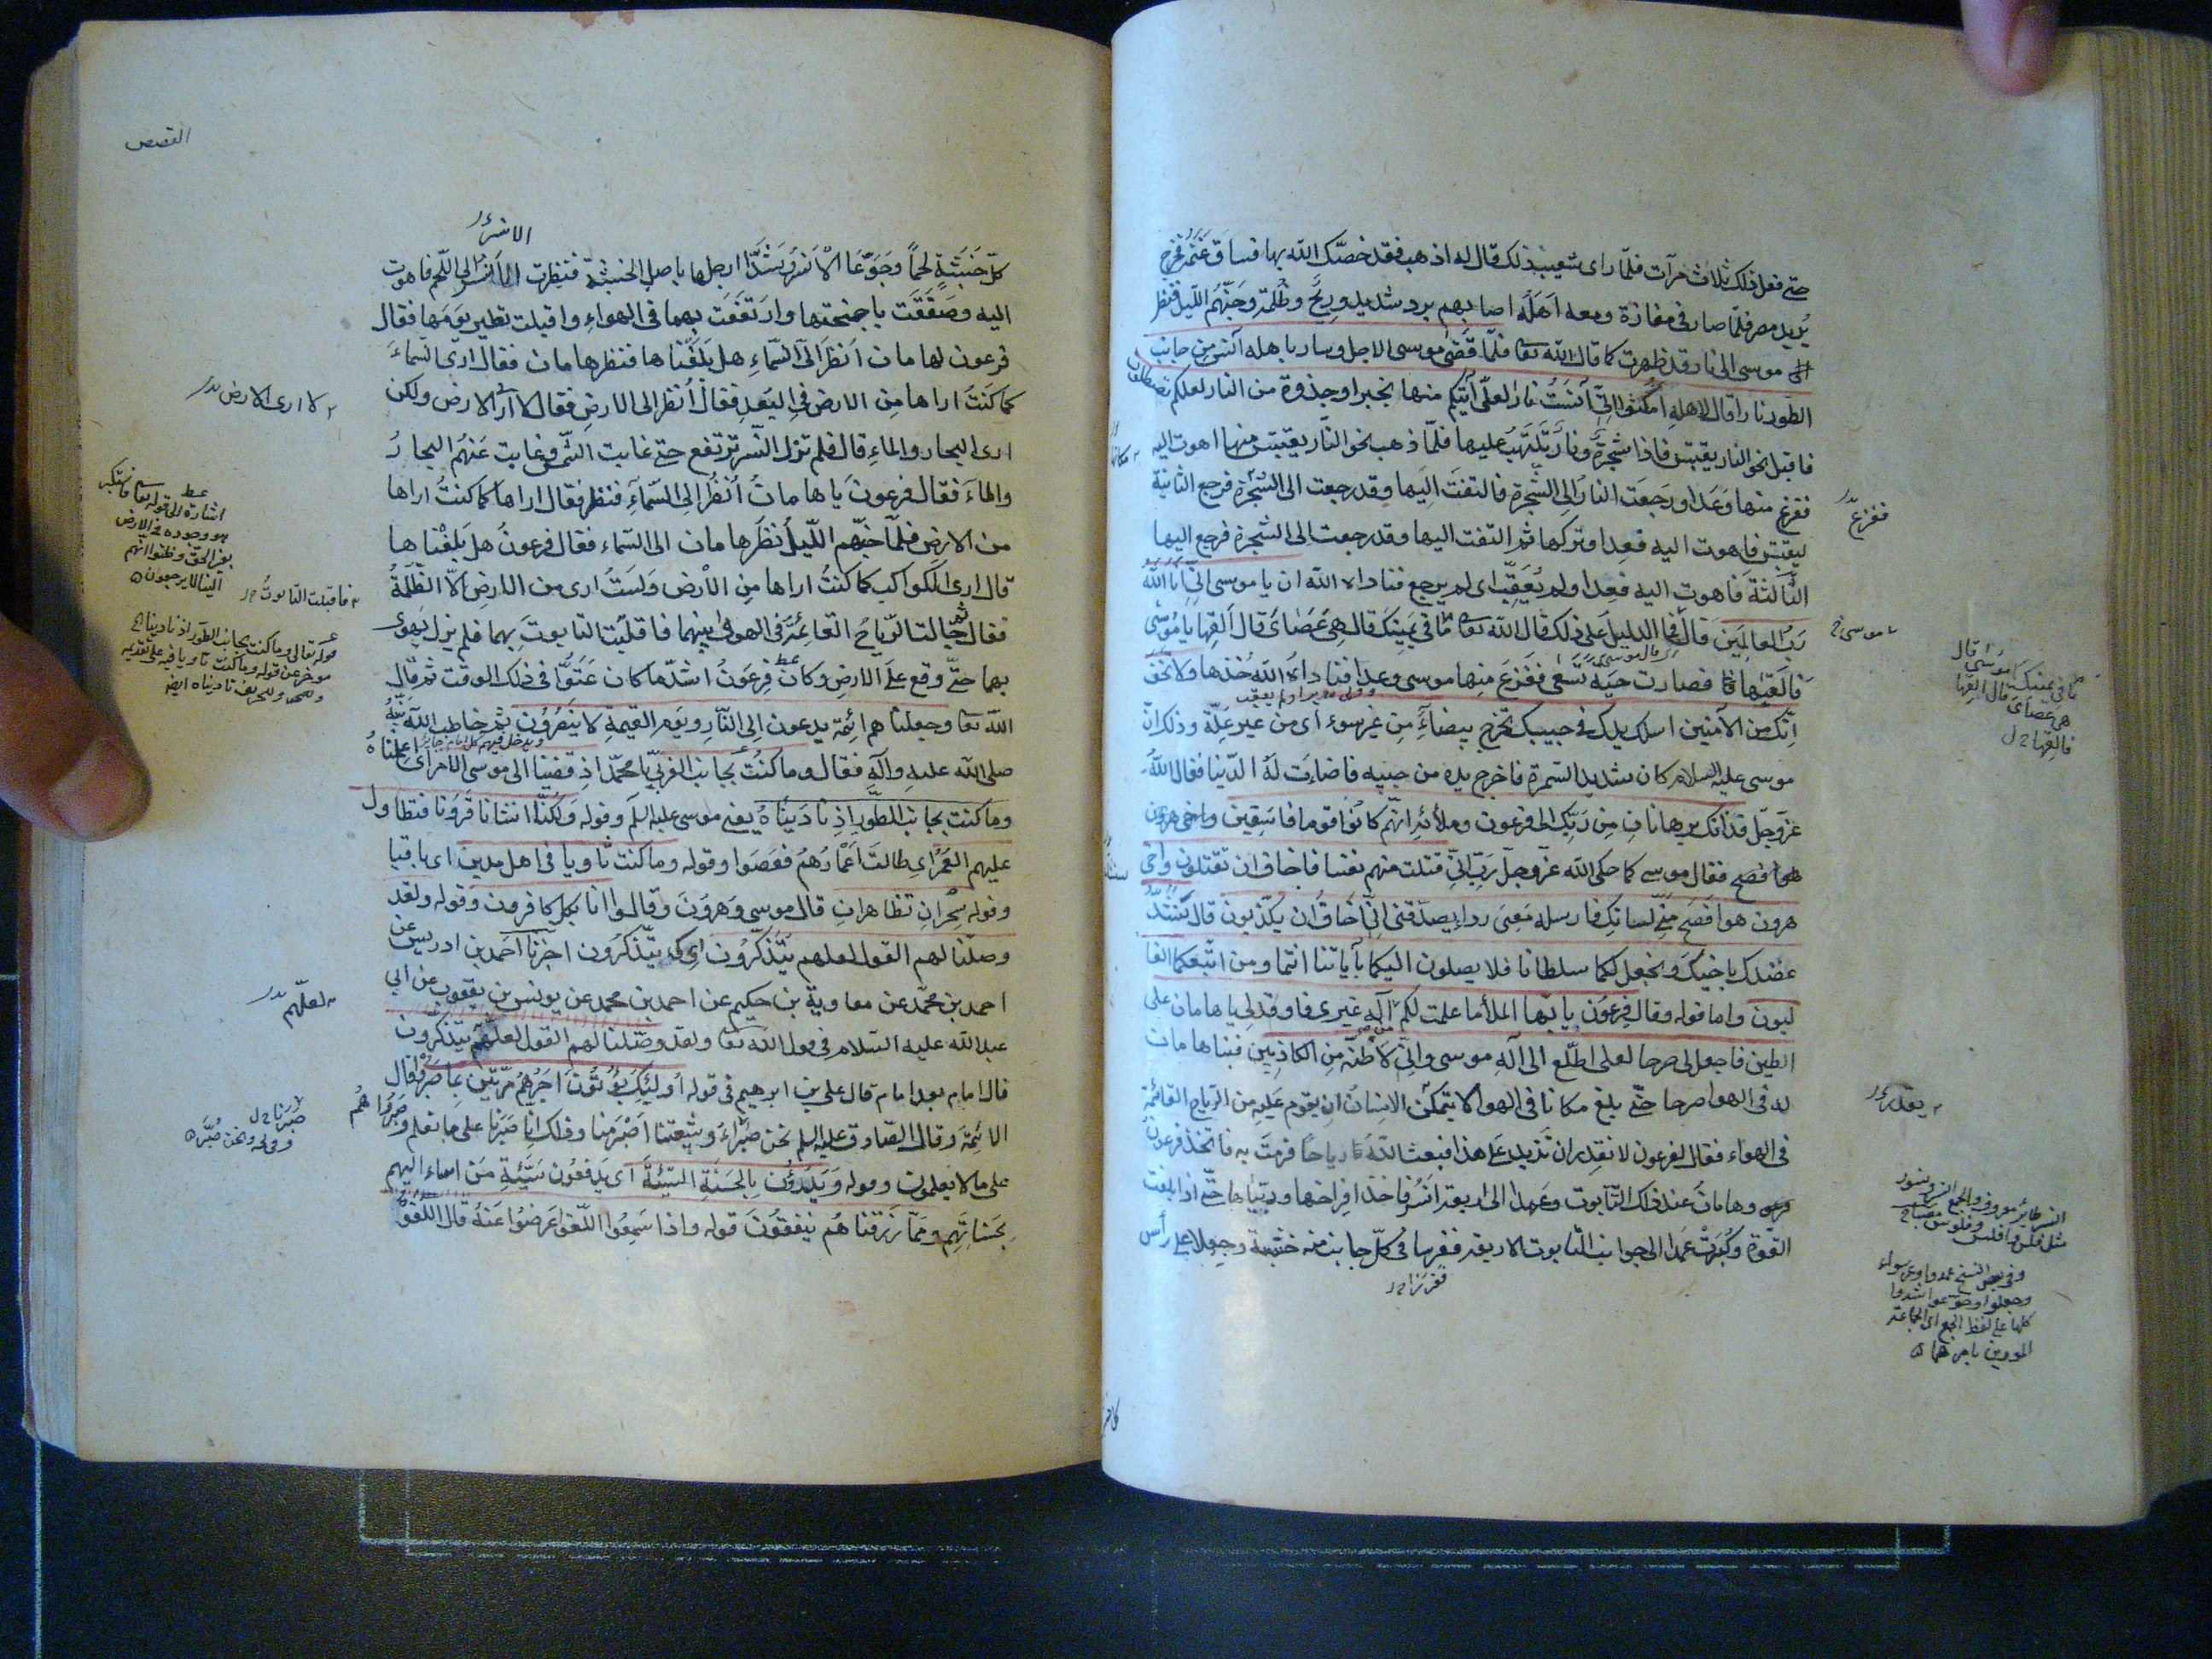 حتى فعل ذلك ثلاث مرآت فلمّا رأى شعيب ذلك قال له اذهب فقد خصّك الله بها فساق غنمه فخرج
يُريد مصر فلمّا صار في مفازة ومعه اَهلُهُ اصابهم برد شديد ورِيحٌ وظُلمة وجَنّهُم اللّيل فنظر
موسى الى نار قد ظهرت كما قال الله تعا فلمّا قضى موسى الاجل وسار باهله آنس من جانب
الطّور نارا قال لاهله امكثوا انّى آنستُ نارا لعلّى آتيكم منها بخبر او جذوة من النار لعلكم تصطلون
فاقبل نحو النار يقتبس فاذا شجرةٌ ونارٌ تلتهب عليها فلمّا ذهب نحو النّار يقتبس منها اهوت اليه
ففزع منها وعدا ورجعت النار الى الشّجرة فالتفت اليها وقد رجعت الى الشّجرة فرجع الثانية
ليقتبس فاهوت اليه فعدا وتركها ثم التفت اليها وقد رجعت الى الشّجرة فرجع اليها
الثّالثة فاهوت اليه فعدا ولم يُعقِّب اى لم يرجع فناداه الله ان يا موسى انّى انا الله
ربّ العالمين قال فما الدليل على ذلك قال الله تعا ما في يمينك قال هي عصاى قال القها يا موسى
فالقيها فصارت حيّة تسعى ففزع منها موسى وعدا فناداه الله خذها ولا تخف
انّك من الآمنين اسلك يدك في جيبك تخرج بيضاء من غير سوء اى من غير علّة وذلك انّ
موسى عليه السلام كان شديد السّمرة فاخرج يده من جيبه فاضاءت له الدّنيا فقال الله
عزّوجلّ فذانك برهانان من ربّك الى فرعون وملائه انّهم كانوا قوما فاسقين واخى هرون
هو افصح فقال موسى كما حكى الله عزّ وجلّ ربّ انّى قتلت منهم نفسا فاخاف ان يقتلون واخى
هرون هو افصح منّى لسانا فارسله معى ردا يصدّقنى انّى اخاف ان يكذّبون قال سنشدّ
عضدك باخيك ونجعل لكما سلطانا فلا يصلون اليكما بآياتنا انتما ومن اتّبعكما الغا
لبون واما قوله وقال فرعون يا ايّها الملأ ما علمت لكم من اله غيرى فاوقد لي يا هامان على
الطين فاجعل لى صرحا لعلى اطّلع الى اله موسى وانّى لاظنّه من الكاذبين فبنا هامان
له في الهوا صرحا حتّى بلغ مكانا في الهوا لا يتمكّن الانسان ان يقوم عليه من الرّياح القائمة
في الهواء فقال لفرعون لا نقدر ان نزيد على هذا فبعث الله رياحا فرمت به فاتّخذ فرعون
وهامان عند ذلك التّابوت وعمدا الى اربعة انسر فاخذا فراخها وربّياها حتّى اذا بلغت
القوّة وكبرت عمدا الى جوانب التّابوت الاربعة فغرسا في كلّ جانب منه خشبة وجعلا على رأس
ففزع
موسى خ
قال
ما في يمينك يا موسى
هي عصاى قال القها
فالقيها
يقدر
النسر طائر معروف والجمع انسر ونسور
مثل فلس وافلس وفلوس مصباح
وفى بعض النسخ عمدوا وغرسوا
وجعلوا وجوّعوا شدوا
كلها على لفظ الجمع
القصص
كلّ خشبة لحما وجوّعا الانسر وشدّا ارجلها باصل الخشبة فنظرت الانسر الى اللّحم فاهوت
اليه وصفقت باجنحتها وارتفعت بهما في الهواء واقبلت تطير يومها فقال
فرعون لهامان انظر الى السّماء هل بلغناها فنظر هامان فقال ارى السماء
كما كنت اراها من الارض في البعد فقال انظر الى الارض فقال لا ارى الارض ولكن
ارى البحار والماء قال فلم تزل النّسر ترتفع حتى غابت الشّمس وغابت عنهم البحار
والماء فقال فرعون يا هامان انظر الى السّماء فنظر فقال اراها كما كنت اراها
من الارض فلمّا جنّهم اللّيل نظر هامان الى السّماء فقال فرعون هل بلغناها
قال ارى الكواكب كما كنت اراها من الارض ولست ارى من الارض الّا الظّلمة
فقال ثم جالت الرّياح القائمة في الهوا بينهما فاقلبت التابوت بهما فلم يزل يهوى
بهما حتّى وقع على الارض وكان فرعون اشدّ ما كان عتوّا في ذلك الوقت ثم قال
الله تعا وجعلناهم ائمّة يدعون الى النّار ويوم القيمة لا ينصرون ثم خاطب الله نبيّه
صلى الله عليه وآله فقال وما كنت بجانب الغربيّ يا محمّد اذ قضينا الى موسى الامر اى اعلمناه
وما كنت بجانب الطّور اذ ناديناه يعنى موسى عليه السلم وقوله ولكنّا انشانا قرونا فتطاول
عليهم العمر اى طالت اعمارهم فعصوا وقوله وما كنت ثاويا في اهل مدين اى باقيا
وقوله سحران تظاهران قال موسى وهرون وقالوا انا بكل كافرون وقوله ولقد
وصلنا لهم القول لعلهم يتذكرون اى كى يتّذكرون اخبرنا احمد بن ادريس عن
احمد بن محمّد عن معاوية بن حكيم عن احمد بن محمد عن يونس بن يعقوب عن ابى
عبد الله عليه السّلام في قول الله تعا ولقد وصّلنا لهم القول لعلّهم يتذكرون
قال امام بعد امام قال على بن ابرهيم في قوله اولئك يؤتون اجرهم مرّتين بما صبروا قال
الائمة وقال الصّادق عليه السلم نحن صبراء وشيعتنا اصبر منّا وذلك انّا صبرنا على ما نعلم وصبروا هم
على ما لا يعلمون وقوله ويدرؤن بالحسنة السّيّئة اى يدفعون سيّئة من اساء اليهم
بحسناتهم وممّا رزقناهم ينفقون قوله واذا سمعوا اللّغو اعرضوا عنه قال اللّغو
لا ارى الارض
اشارة الى قوله تعا فاستكبر
هو وجنوده في الارض
بغير الحق وظنوا انهم
الينا لا يرجعون
فاقبلت التابوت
قوله تعالى وما كنت بجانب الطّور اذ نادينا
موخر عن قوله وما كنت ثاويا فيه على تقديمه
لعلّهم
صبّرنا